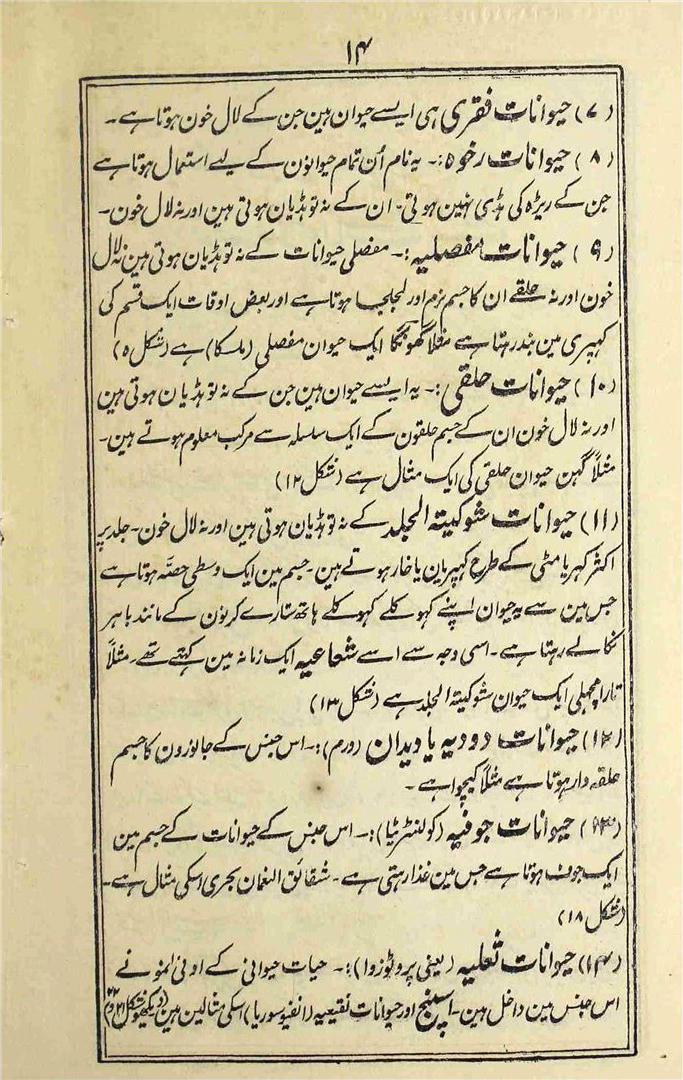 ۱۴
(۷) حیوانات فقری ہی ایسے حیوان ہین جن کے لال خون ہوتا ہے۔
(۸) حیوانات رخوہ:۔ یہ نام اُن تمام حیوانون کے لیے استعمال ہوتا ہے
جن کے ریڑہ کی ہڈی نہین ہوتی۔ ان کے نہ تو ہڈیان ہوتی ہین اور نہ لال خون۔
(۹) حیوانات مفصلیہ:۔ مفصلی حیوانات کے نہ تو ہڈیان ہوتی ہین نہ لال
خون اور نہ حلقے ان کا جسم نرم اور لجلجا ہوتا ہے اور بعض اوقات ایک قسم کی
کہپری مین بند رہتا ہے مثلاً گھونگا ایک حیوان مفصلی (ملسکا) ہے (شکل ۵)
(۱۰) حیوانات حلقی:۔ یہ ایسے حیوان ہین جن کے نہ تو ہڈیان ہوتی ہین
اور نہ لال خون ان کے جسم حلقون کے ایک سلسلہ سے مرکب معلوم ہوتے ہین۔
مثلاً گہن حیوان حلقی کی ایک مثال ہے (شکل ۱۲)
(۱۱) حیوانات شوکیتہ الجلد کے نہ تو ہڈیان ہوتی ہین اور نہ لال خون۔ جلد پر
اکثر کہریا مٹی کے طرح کہپریان یا خار ہوتے ہین۔ جسم مین ایک وسطی حصّہ ہوتا ہے
جس مین سے یہ حیوان اپنے کہوکلے کہوکلے ہاتھ ستارے کرنون کے مانند باہر
نکالے رہتا ہے۔ اسی وجہ سے اسے شعاعیہ ایک زمانہ مین کہتے تھے۔ مثلاً
تارا مچھلی ایک حیوان شوکیتہ الجلد ہے (شکل ۱۳)
(۱۲) حیوانات دودیہ یا دیدان (ورم):۔ اس جنس کے جانورون کا جسم
حلقہ دار ہوتا ہے مثلاً کیچوا ہے۔
(۱۳) حیوانات جوفیہ (کولنٹریٹا):۔ اس جنس کے حیوانات کے جسم مین
ایک جوف ہوتا ہے جس مین غذا رہتی ہے۔ شقائق النعمان بحری اسکی مثال ہے۔
(شکل ۱۸)
(۱۴) حیوانات ثعلیہ (یعنی پروٹوزوا):۔ حیات حیوانی کے ادنی نمونے
اس جنس مین داخل ہین۔ اسپنج اور حیوانات نقیعیہ (انفیوسوریا) اسکی مثالین ہین (دیکھو شکل